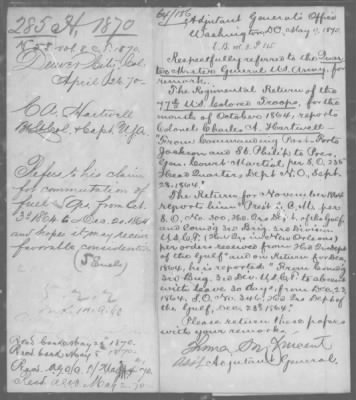 285 H, 1870
Denver City, Col.
April 26. 70.
C. A. Hartwell
Refers to his claim
for commutation of
fuel &c from Oct.
3d 1864 to Dec. 20. 1864
and hopes it may receive
favorable consideration
(5 Encls)
64/186
Adjutant General's Office
Washington D.C. May 4, 1870.
Respectfully referred to the Quar-
termaster General U.S. Army, for
remark.
The Regimental Return of the
77th U.S. Colored Troops, for the
month of October 1864, reports
Colonel Charles A. Hartwell
"From Commanding Post. Forts
Jackson and St. Philip) to Pres.
Gen. Court Martial, per S.O. 235
Head Quarters Dept N.O., Sept
28. 1864."
The Return for November 1864
reports him "Prest. G.C.M. per
S.O. No. 300, Hd. Qrs Dept. of the Gulf,
and Comdg 3rd Brig. 3rd Division
U.S.C.T. (Hd Qrs in New Orleans)
per orders received from Hd. Qrs Dept
of the Gulf" and on Return for Dec,
1864, he is reported "From Comdg
3rd Brig. 3rd Div. U.S.C.T. to absence
with leave 30 days, from Dec. 23
1864, S.O. No. 346. Hd. Qrs Dept of the
Gulf, Dec. 23d 1864."
Please return these papers
with your remarks.
Thomas M. Vincent
Asst. Adjutant General.